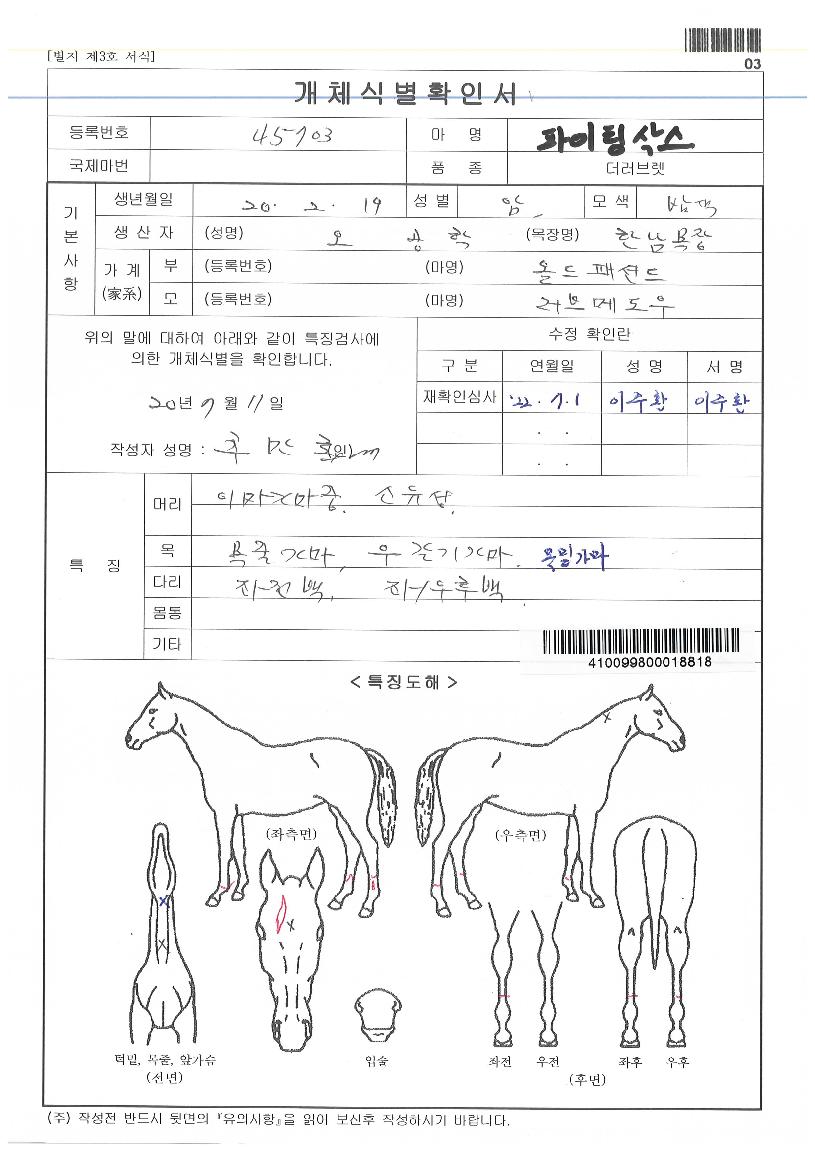 [별지 제3호 서식]
03
개체식별확인서
등록번호 45703 마 명 파이팅삭스
국제마번 품 종 더러브렛
기본사항
생년월일 20. 2. 19 성별 암 모색 밤색
생산자 (성명) 오 공 학 (목장명) 한남목장
가계 (家系) 부 (등록번호) (마명) 올드패션드
모 (등록번호) (마명) 러브메도우
위의 말에 대하여 아래와 같이 특징검사에
의한 개체식별을 확인합니다.
20년 7월 11일
작성자 성명 : (인)
수정 확인란
구 분 연월일 성 명 서 명
재확인심사 '22. 7. 1 이주환 이주환
. .
. .
특 징
머리
목 목줄가마, 목밑가마
다리 좌전백, 좌/우후백
몸통
기타
410099800018818
< 특징도해 >
(좌측면) (우측면)
턱밑, 목줄, 앞가슴
(전면)
입술
좌전 우전 좌후 우후
(후면)
(주) 작성전 반드시 뒷면의 『유의사항』을 읽어 보신후 작성하시기 바랍니다.